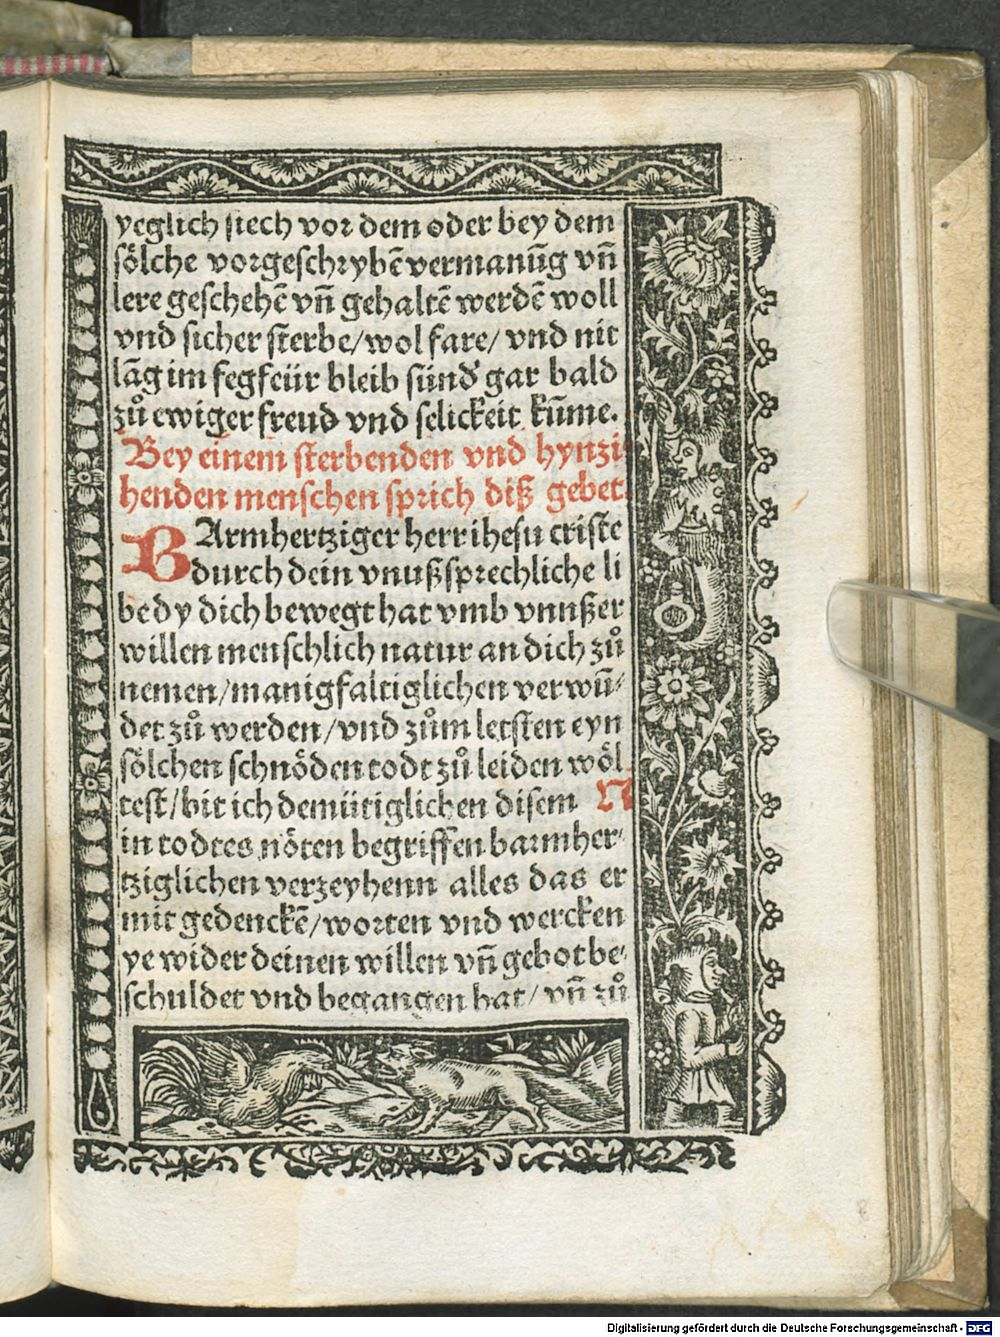 yeglich siech vor dem oder bey dem
sölche vorgeschrybē vermanūg vñ
lere geschehē vñ gehaltē werdē woll
vnd sicher sterbe/wol fare/ vnd nit
lāg im fegfeür bleib sünd' gar bald
zů ewiger freud vnd selickeit kūme.
Bey einem sterbenden vnd hynzi⸗
henden menschen sprich diß gebet.
BArmhertziger herr ihesu criste
durch dein vnußsprechliche li
be dy dich bewegt hat vmb vnnßer
willen menschlich natur an dich zů
nemen/manigfaltiglichen verwū⸗
det zů werden/vnd zům letsten eyn
sölchen schnöden todt zů leiden wöl
test/bit ich demütiglichen disem N
in todtes nöten begriffen barmher⸗
tziglichen verzeyhenn alles das er
mit gedenckē/worten vnd wercken
ye wider deinen willen vñ gebot be⸗
schuldet vnd begangen hat/ vñ zů
Digitalisierung gefördert durch die Deutsche Forschungsgemeinschaft - DFG